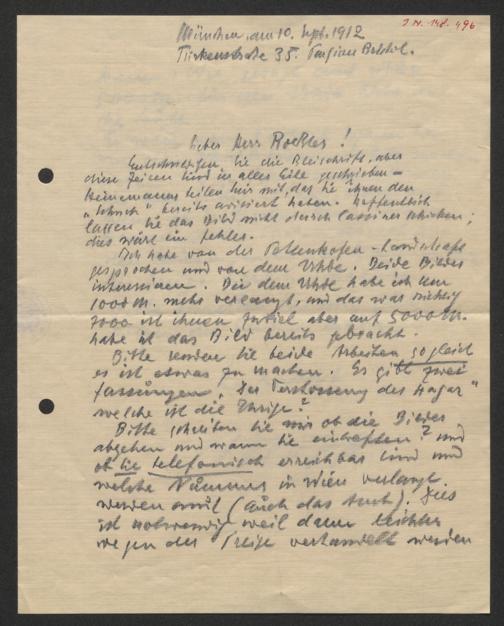 J.N. 148.496
München, am 10. Sept. 1912
Türkenstraße 35. Pension
Lieber Herr Roessler!
Entschuldigen Sie die Bleischrift, aber
diese Zeilen sind in aller Eile geschrieben –
teilen mir mit, das Sie ihnen den
bereits avisiert haben. Hoffentlich
lassen Sie das Bild nicht durch schicken;
dies wäre ein Fehler.
Ich habe von der Pettenkofen-Landschaft
gesprochen und von dem Uhde. Beide Bilder
interessieren. Bei dem Uhde habe ich um
1000 M. mehr verlangt, und das war richtig
7000 ist ihnen zuviel aber auf 5000 M.
habe ich das Bild bereits gebracht.
Bitte senden Sie beide Arbeiten sogleich
es ist etwas zu machen. Es gibt zwei
Fassungen „Der Verstossung des Hagar"
welche ist die Ihrige?
Bitte schreiben Sie mir ob die Bilder
abgehen und wann Sie eintreffen? und
ob Sie telefonisch erreichbar sind und
welche Nummer in Wien verlangt
werden muß (auch das Amt). Dies
ist notwendig weil dann leichter
wegen der Preise verhandelt werden